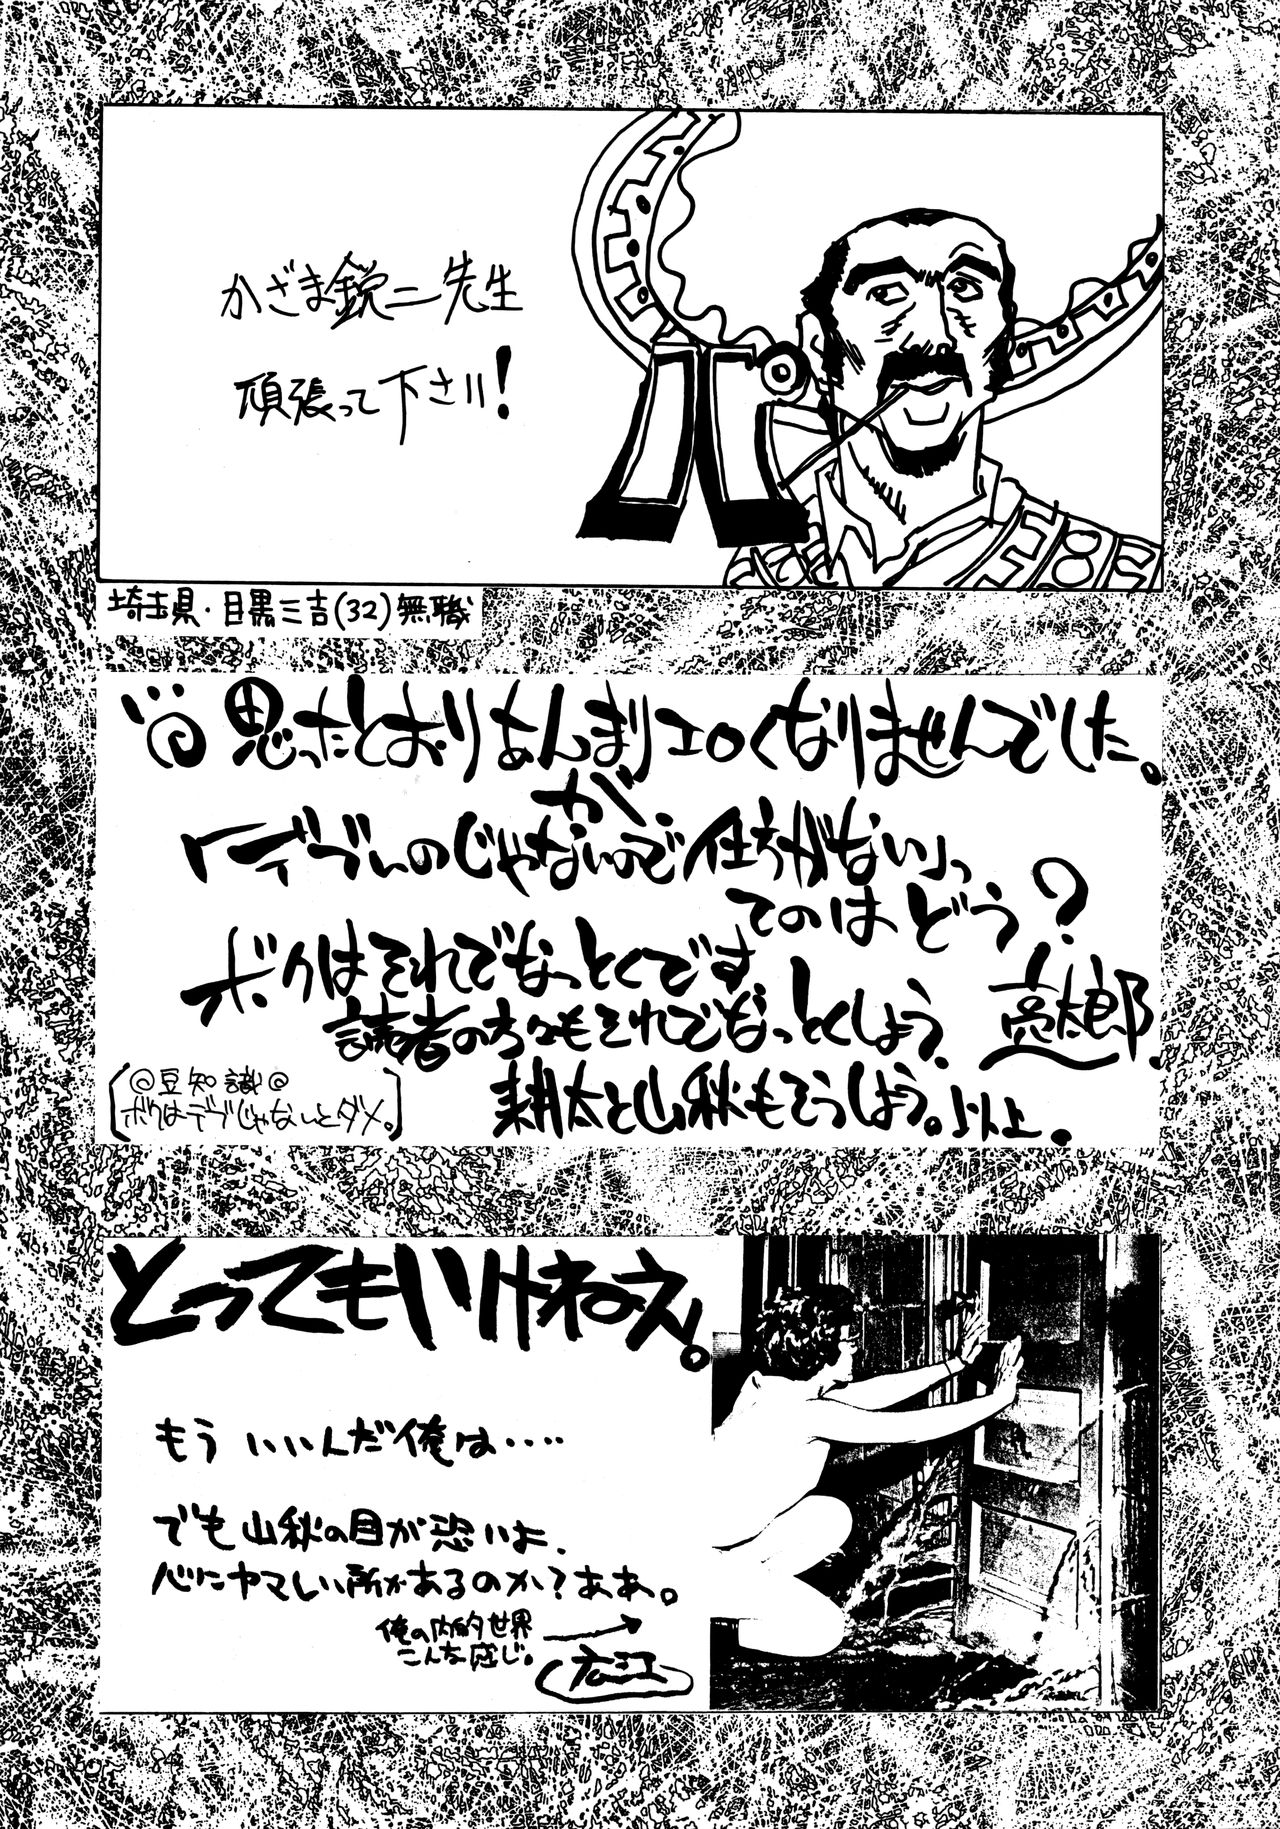 かざま鋭二先生
頑張って下さい!
埼玉県・目黒三吉(32)無職
思ったとおりあんまりエロくなりませんでした。
が
「デブいのじゃないので仕方がない」っ
てのはどう?
ボクはそれでなっとくです。
読者の方々もそれでなっとくしよう。
亮太郎
耕太と山秋もそうしよう。以上。
@豆知識@
ボクはデブじゃないとダメ。
とってもいけねえ。
もういいんだ俺は‥‥
でも山秋の目が恐いよ、
心にヤマしい所があるのか?ああ。
俺の内的世界
こんな感じ。